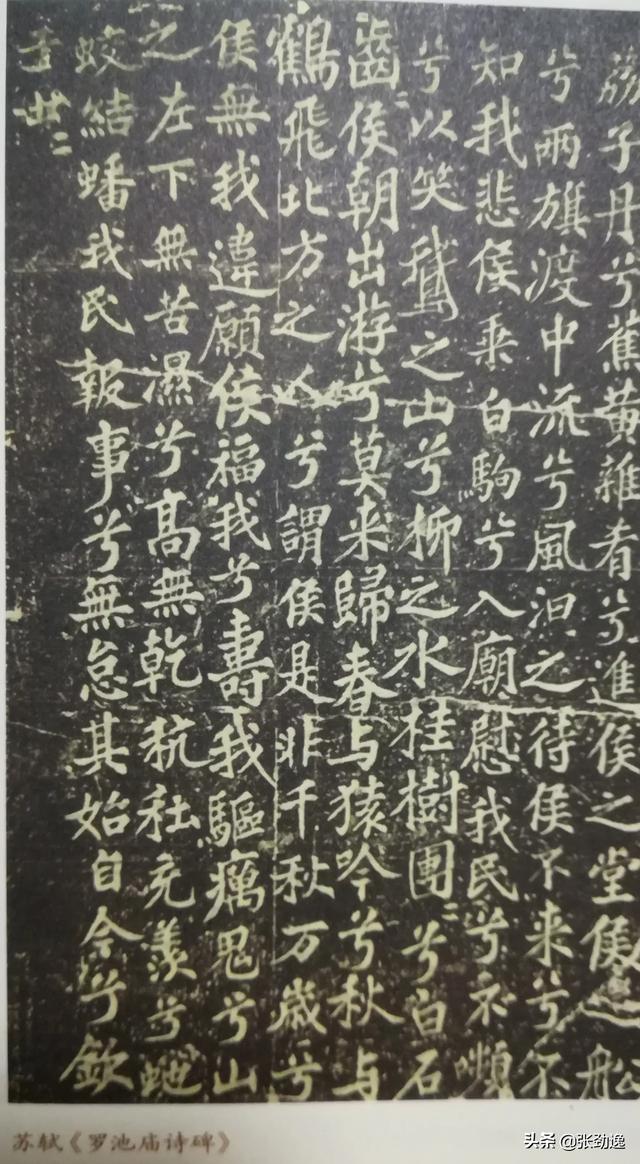 荔子丹兮蕉黄雜肴兮進侯之堂侯之船
兮兩旗渡中流兮風汩之待侯不来兮不
知我悲侯乗白駒兮入廟慰我民兮不嚬
兮以笑鵞之山兮柳之水桂樹團〻兮白石
齒〻侯朝出游兮莫来歸春与猿吟兮秋與
鶴飛北方之人兮謂侯是非千秋万歲兮
侯無我違願侯福我兮壽我驅癘鬼兮山
之左下無苦濕兮髙無乾秔稌充羡兮虵
蛟結蟠我民報事兮無怠其始自今兮欽
于世〻
苏轼《罗池庙诗碑》
头条 @张劲逸